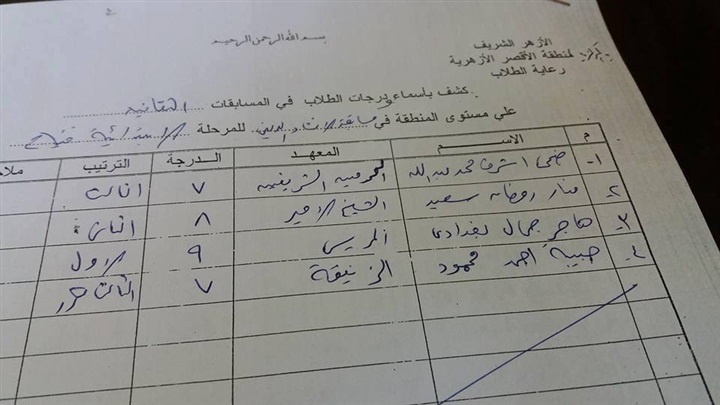 بسم الله الرحمن الرحيم
الأزهر الشريف
لمنطقة الأقصر الأزهرية
رعاية الطلاب
كشف بأسماء ودرجات الطلاب في المسابقات الثقافية
على مستوى المنطقة في مسابقة للمرحلة الابتدائية
م الاسم المعهد الدرجة الترتيب ملا
١- ضحى اشرف محمد عبدالله الشريفية ٧ الثالث
٢- منار رمضان سعيد الشيخ الامير ٨ الثانى
٣- هاجر جمال بغدادى المريس ٩ الاول
٤- حبيبة احمد محمود الزينيقة ٧ الثالث مكرر